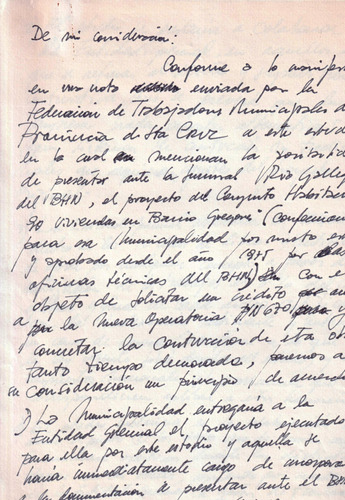 De mi consideración:
Conforme a lo manifes
en una nota enviada por la
Federación de Trabajadores Municipales de
Provincia de Sta Cruz a este estud
en la cual mencionan la
de presentar ante la Sucursal Río Galleg
del BHN, el proyecto del Conjunto Habitac
90 viviendas en Barrio Gregores
para esa Municipalidad por nuestro es
y aprobado desde el año 1975 por las
oficinas técnicas del BHN) con e
objeto de solicitar un crédito
a la nueva Operatoria
concretar la construcción de esta ob
tanto tiempo demorada, ponemos a
su consideración un principio de acuerdo
1) La Municipalidad entregaría a la
Entidad Gremial el proyecto ejecutado
para ella por este estudio y aquella se
haría inmediatamente cargo de
la documentación a presentar ante el BH